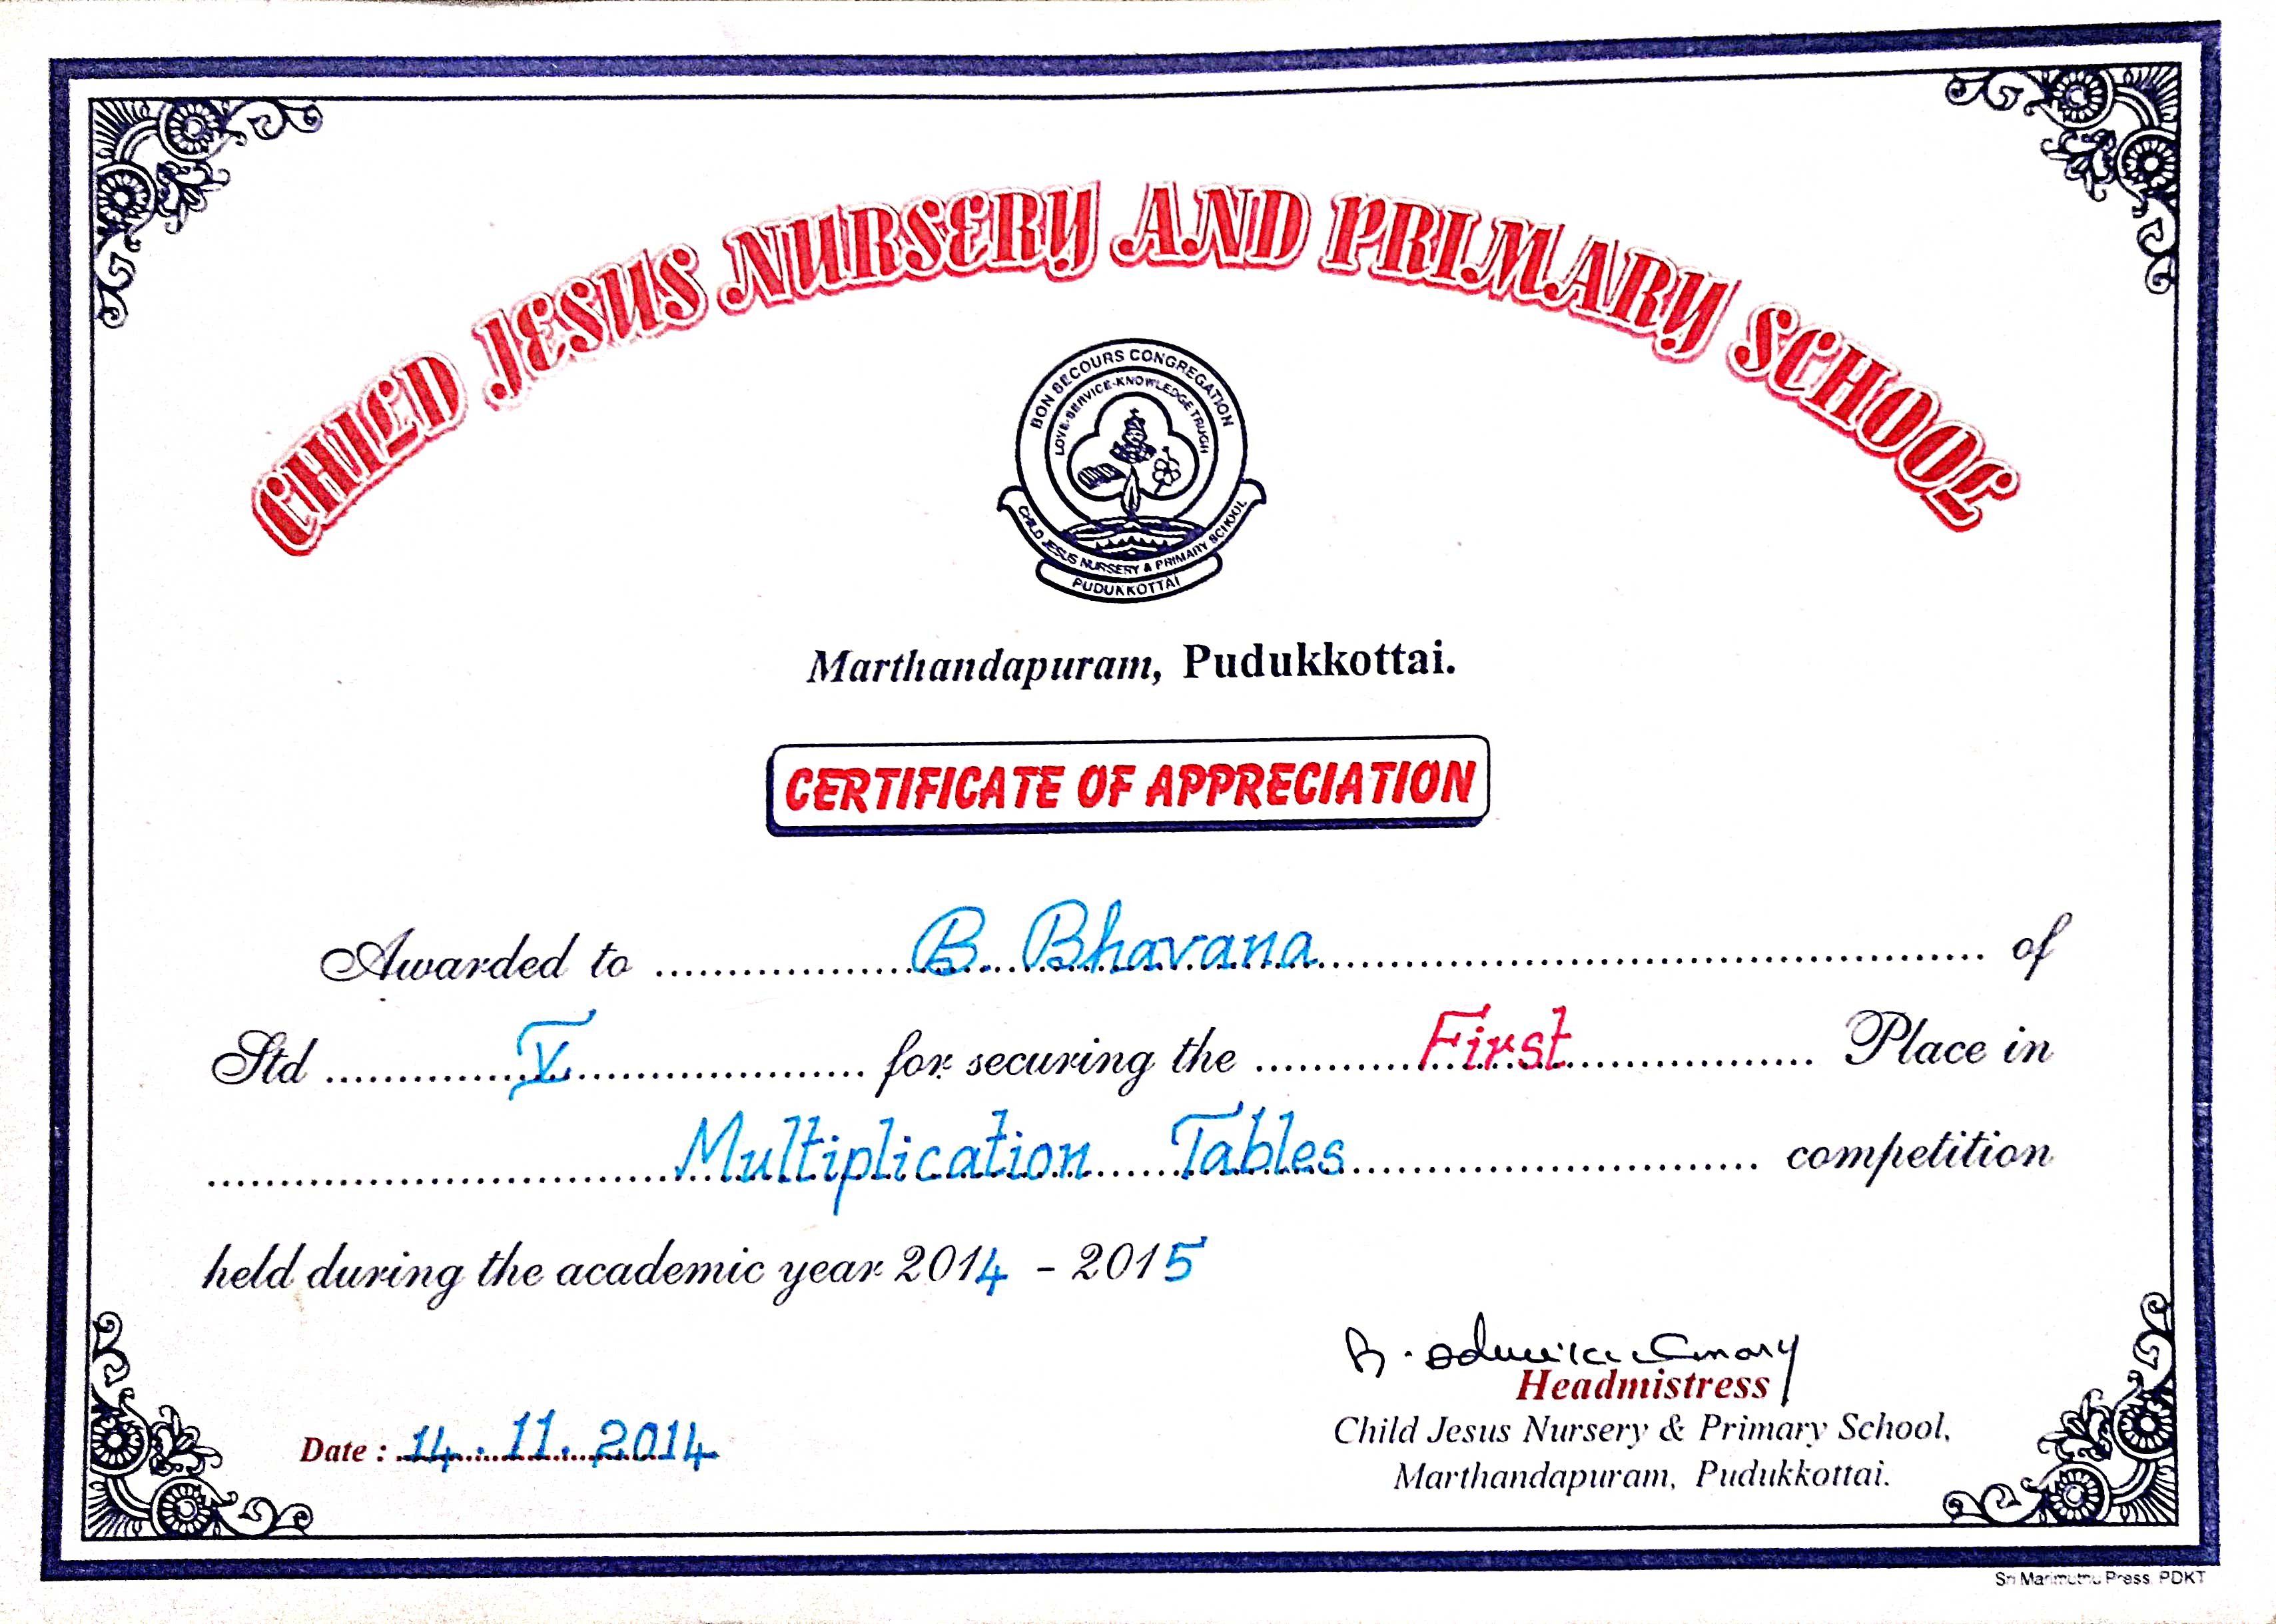 CHILD JESUS NURSERY AND PRIMARY SCHOOL
BON SECOURS CONGREGATION
LOVE-SERVICE-KNOWLEDGE TRUGH
CHILD JESUS NURSERY & PRIMARY SCHOOL
PUDUKKOTTAI
Marthandapuram, Pudukkottai.
CERTIFICATE OF APPRECIATION
Awarded to B. Bhavana of
Std V for securing the First Place in
Multiplication Tables competition
held during the academic year 2014 - 2015
Headmistress
Date : 14.11.2014
Child Jesus Nursery & Primary School,
Marthandapuram, Pudukkottai.
Sri Marimuthu Press, PDKT